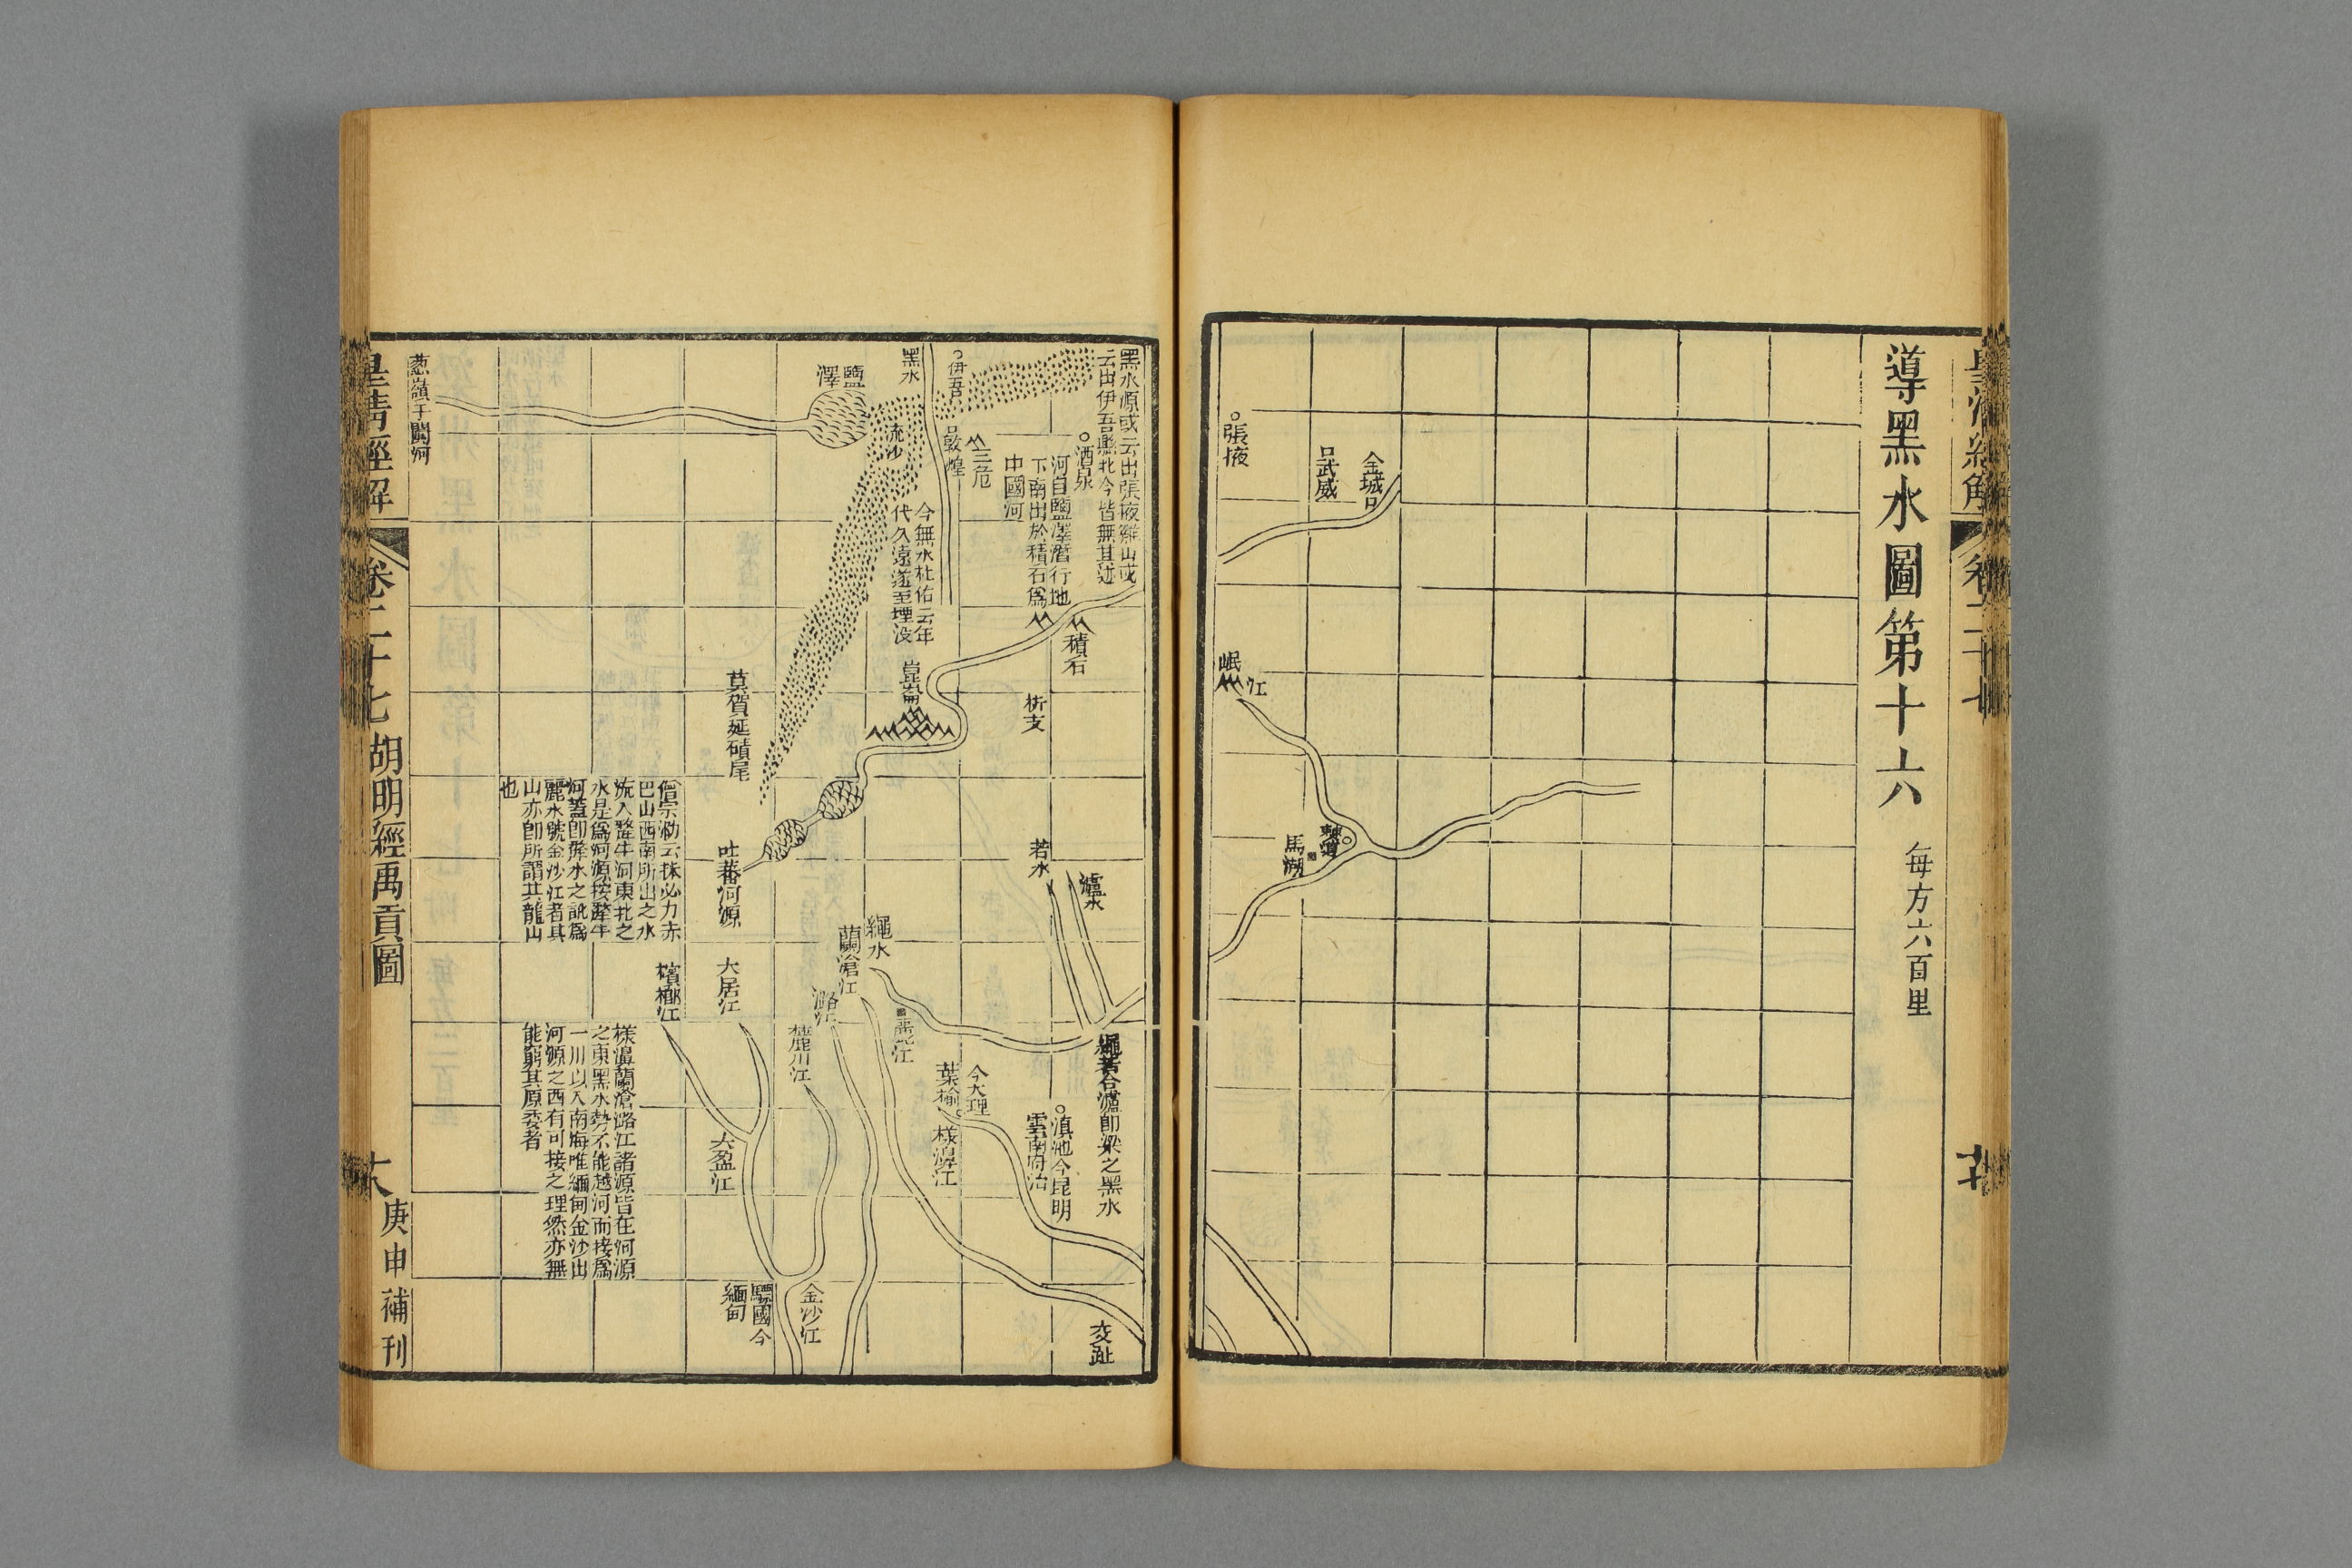 皇清經解
卷二十七
導黑水圖第十六
每方六百里
金城
武威
張掖
岷
江
馬湖
黑水源或云出張掖雞山或
云出伊吾縣北今皆無其迹
酒泉
河自鹽澤潛行地
下南出於積石爲
中國河
三危
伊吾
敦煌
黑水
今無水杜佑云年
代久遠遂至堙没
流沙
鹽澤
葱嶺于闐河
積石
析支
崑崙
莫賀延磧尾
吐蕃河源
僧宗泐云抹必力赤
巴山西南所出之水
流入犛牛河東北之
水是爲河源按犛牛
河蓋即犂水之訛爲
麗水號金沙江者其
山亦即所謂其龍山
也
若水
瀘水
繩水
蘭滄江
潞江
麓川江
大居江
檳榔江
麗江
繩若合瀘即梁之黑水
滇池今昆明
雲南府治
今大理
葉榆
様濞江
大盈江
様濞蘭滄潞江諸源皆在河源
之東黑水勢不能越河而接爲
一川以入南海唯緬甸金沙出
河源之西有可接之理然亦無
能窮其原委者
金沙江
驃國今
緬甸
交趾
皇清經解
卷二十七
胡明經禹貢圖
庚申補刊